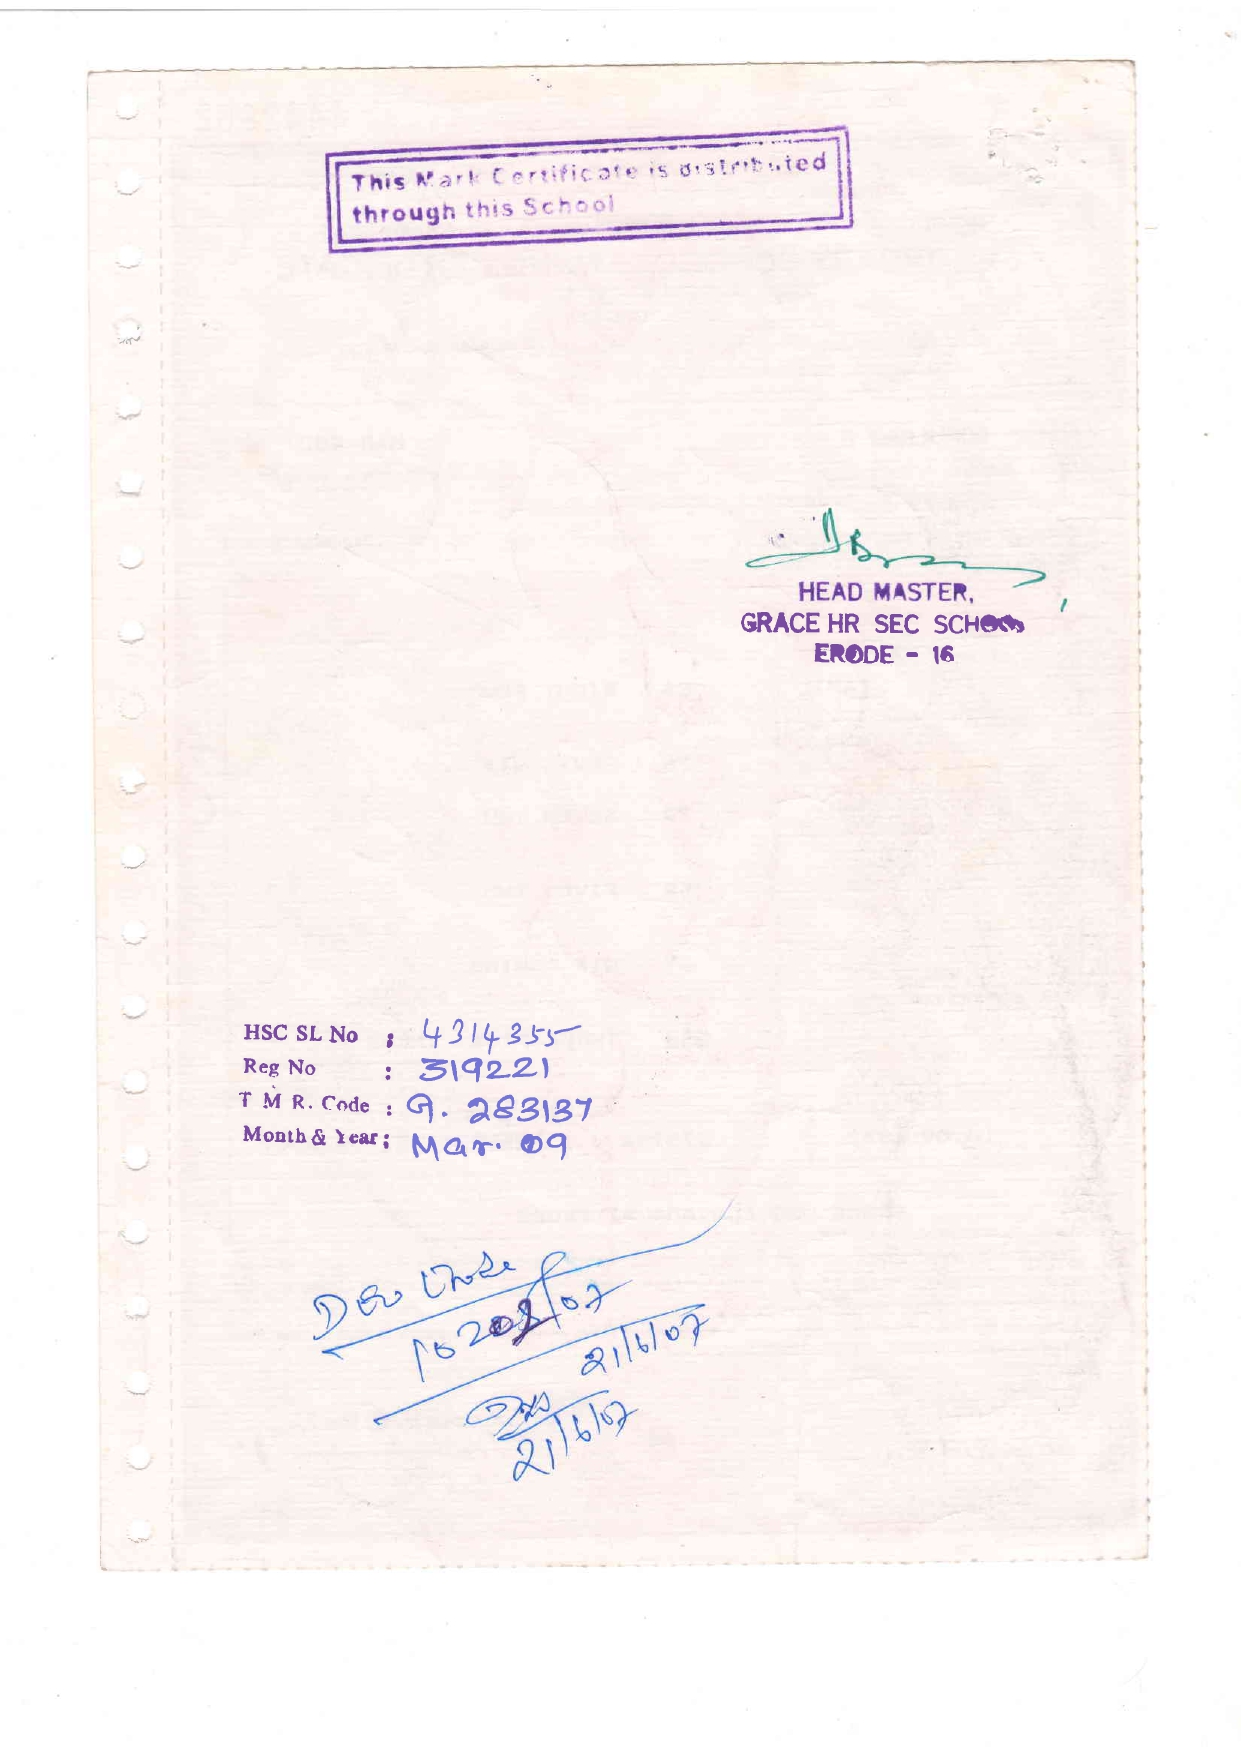 This Mark Certificate is distributed
through this School
HEAD MASTER,
GRACE HR SEC SCHOOL
ERODE - 16
HSC SL No : 4314355
Reg No : 319221
T M R. Code : G. 283137
Month & Year : Mar. 09
21/6/07
21/6/07